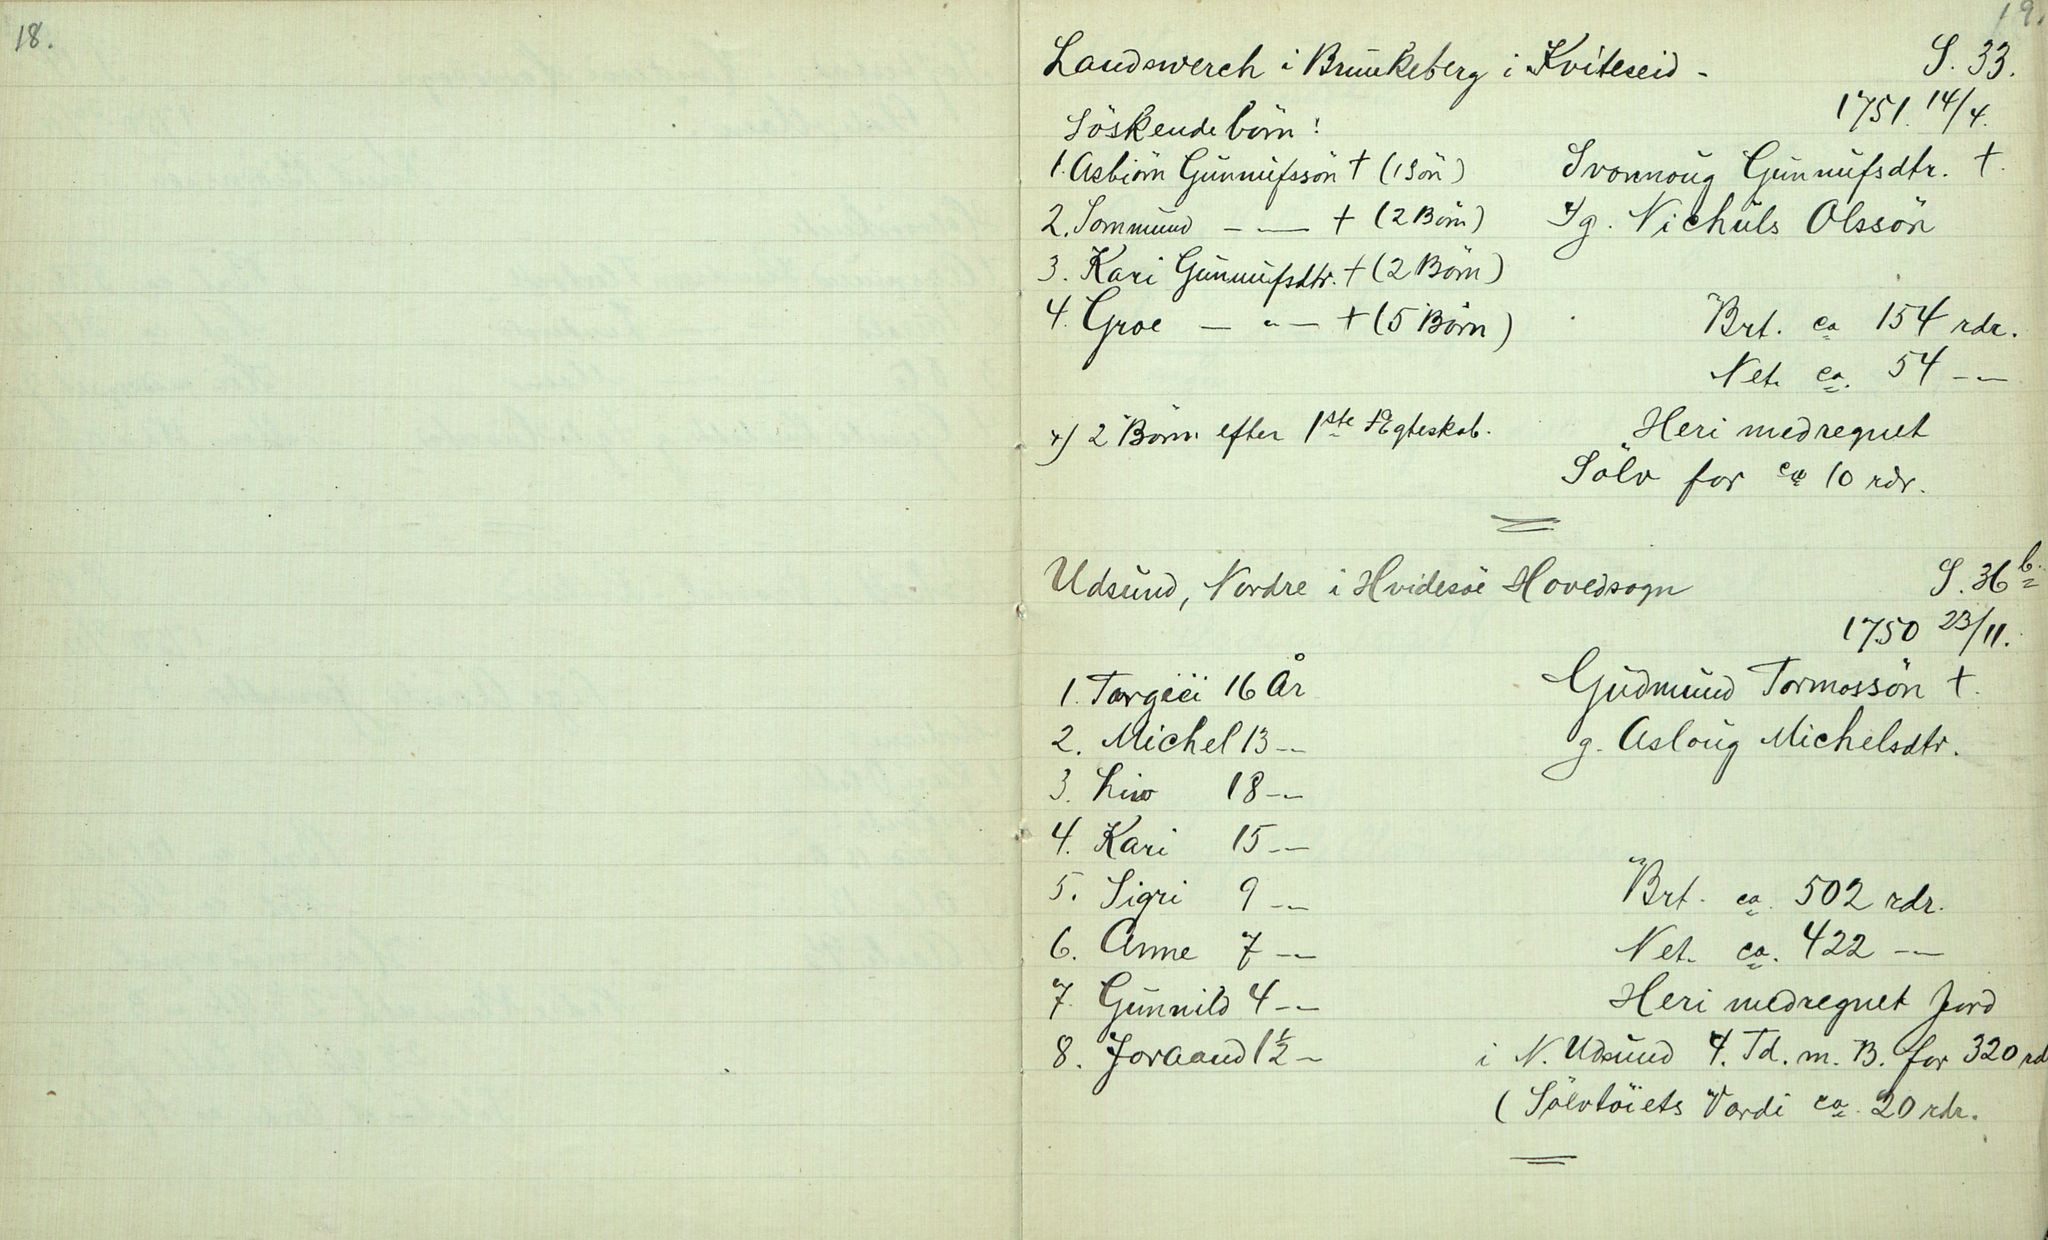 18.
19.
Landsverch i Brunkeberg i Kviteseid - S. 33.
1751. 14/4.
Söskendebörn:
1. Asbiörn Gunnufssön † (1 Sön) Svonnoug Gunnufsdtr. †.
2. Tommund - — † (2 Börn) g. Nichuls Olssön
3. Kari Gunnufsdtr. † (2 Börn)
4. Groe — „ — † (5 Börn) Brt. ca 154 rdr.
Net. ca. 54 -„-
x) 2 Börn efter 1ste Ægteskab. Heri medregnet
Sölv for ca 10 rdr.
Udsund, Nordre i Hvidesöe Hovedsogn S. 36 b.
1750 23/11.
1. Torgiei 16 År Gudmund Tormossön †.
2. Michel 13 -„- g. Asloug Michelsdtr.
3. Liv 18 -„-
4. Kari 15 -„-
5. Sigri 9 -„- Brt. ca. 502 rdr.
6. Anne 7 -„- Net. ca. 422 -„-
7. Gunnild 4 -„- Heri medregnet Jord
8. Joraand 1½ - i N. Udsund 4. Td. m. B. for 320 rd
(Sölvtöiets Værdi ca. 20 rdr.